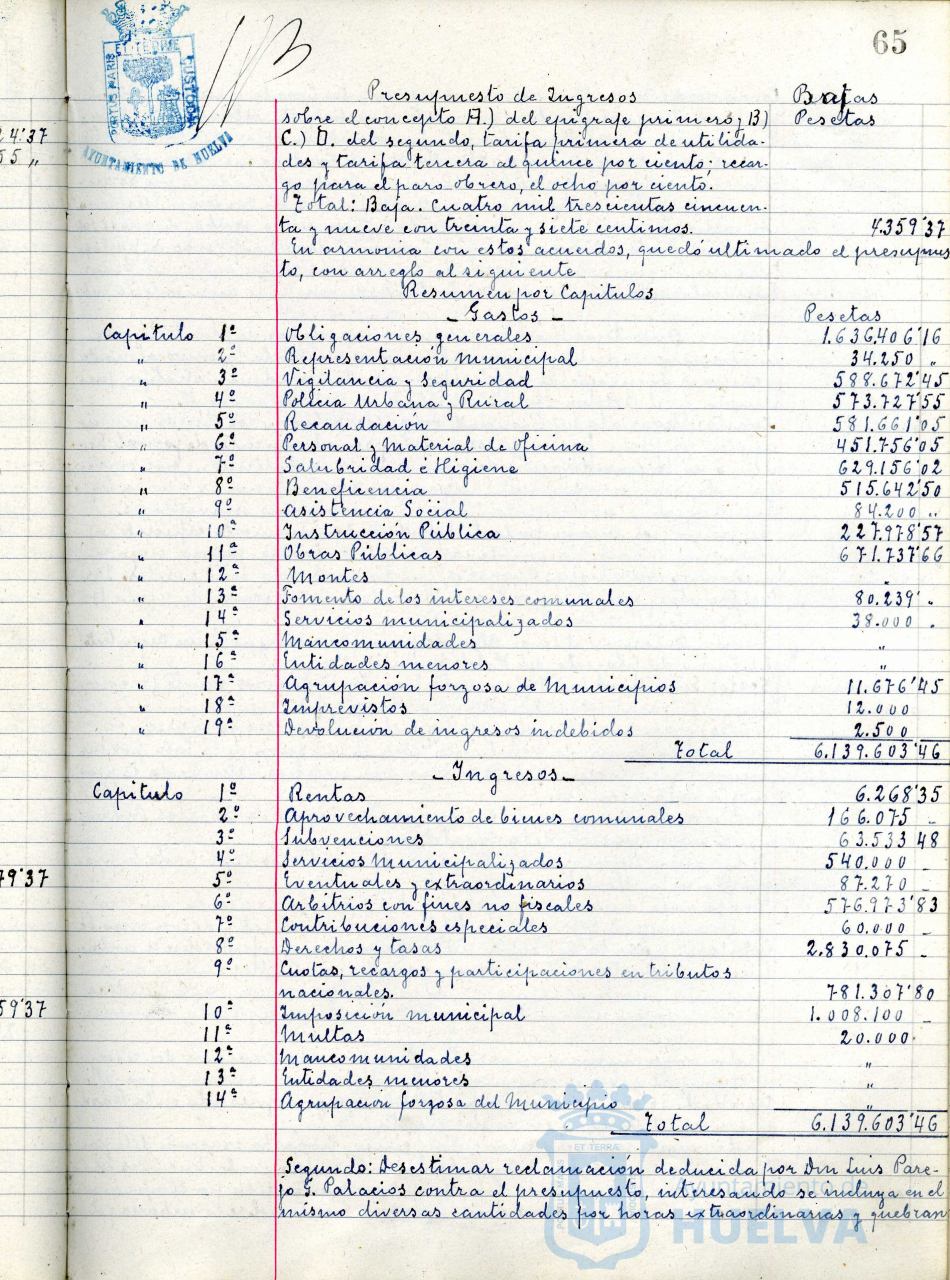 65
Presupuesto de Ingresos Bajas
sobre el concepto A.) del epigrafe primero; B) Pesetas
C.) D. del segundo, tarifa primera de utilida-
des y tarifa tercera al quince por ciento; recar-
go para el paro obrero, el ocho por ciento.
Total: Baja. Cuatro mil trescientas cincuen-
ta y nueve con treinta y siete centimos. 4.359'37
En armonia con estos acuerdos, quedó ultimado el presupues
to, con arreglo al siguiente
Resumen por Capitulos
- Gastos - Pesetas
Capitulo 1º Obligaciones generales 1.636.406'16
" 2º Representación municipal 34.250 "
" 3º Vigilancia y Seguridad 588.672'45
" 4º Policia Urbana y Rural 573.727'55
" 5º Recaudación 581.661'05
" 6º Personal y Material de oficina 451.756'05
" 7º Salubridad é Higiene 629.156'02
" 8º Beneficencia 515.642'50
" 9º asistencia Social 84.200 "
" 10ª Instrucción Pública 227.978'57
" 11ª Obras Públicas 671.737'66
" 12ª Montes "
" 13ª Fomento de los intereses comunales 80.239' "
" 14ª Servicios municipalizados 38.000 "
" 15ª Mancomunidades "
" 16ª Entidades menores "
" 17ª Agrupación forzosa de Municipios 11.676'45
" 18ª Imprevistos 12.000
" 19ª Devolución de ingresos indebidos 2.500
Total 6.139.603'46
- Ingresos -
Capitulo 1º Rentas 6.268'35
2º Aprovechamiento de bienes comunales 166.075 -
3º Subvenciones 63.533 48
4º Servicios Municipalizados 540.000 -
5º Eventuales y extraordinarios 87.270 -
6º Arbitrios con fines no fiscales 576.973'83
7º Contribuciones especiales 60.000 -
8º Derechos y tasas 2.830.075 -
9º Cuotas, recargos y participaciones en tributos
nacionales. 781.307'80
10ª Imposición municipal 1.008.100 -
11ª Multas 20.000.
12ª Mancomunidades "
13ª Entidades menores "
14ª Agrupación forzosa del Municipio "
Total 6.139.603'46
Segundo: Desestimar reclamación deducida por Don Luis Pare-
jo G. Palacios contra el presupuesto, interesando se incluya en el
mismo diversas cantidades por horas extraordinarias y quebran
PORTUS MARIS ET TERRÆ CUSTODIA
AYUNTAMIENTO DE HUELVA
4'37
55 "
79'37
59'37
ET TERRÆ
Ayuntamiento de
HUELVA